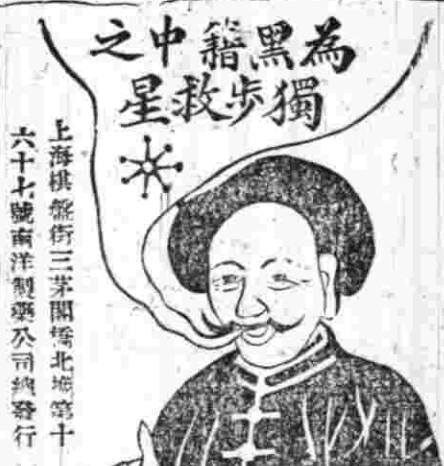 為黑籍中之
獨步救星
上海棋盤街三茅閣橋北堍第十
六十七號南洋製藥公司總發行